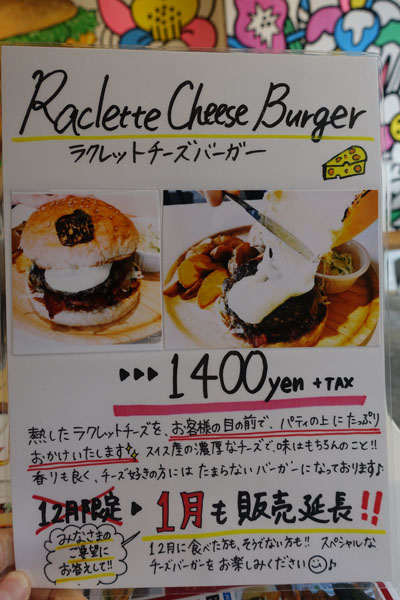 Raclette Cheese Burger
ラクレットチーズバーガー
▶▶▶ 1400yen +TAX
熱したラクレットチーズを、お客様の目の前で、パティの上にたっぷり
おかけいたします♪ スイス産の濃厚なチーズで、味はもちろんのこと!!
香りも良く、チーズ好きの方には たまらないバーガーになっております♪
12月限定 ▶ 1月も販売延長!!
みなさまの
ご要望に
お答えして!!
12月に食べた方も、そうでない方も!! スペシャルな
チーズバーガーをお楽しみください☺♪